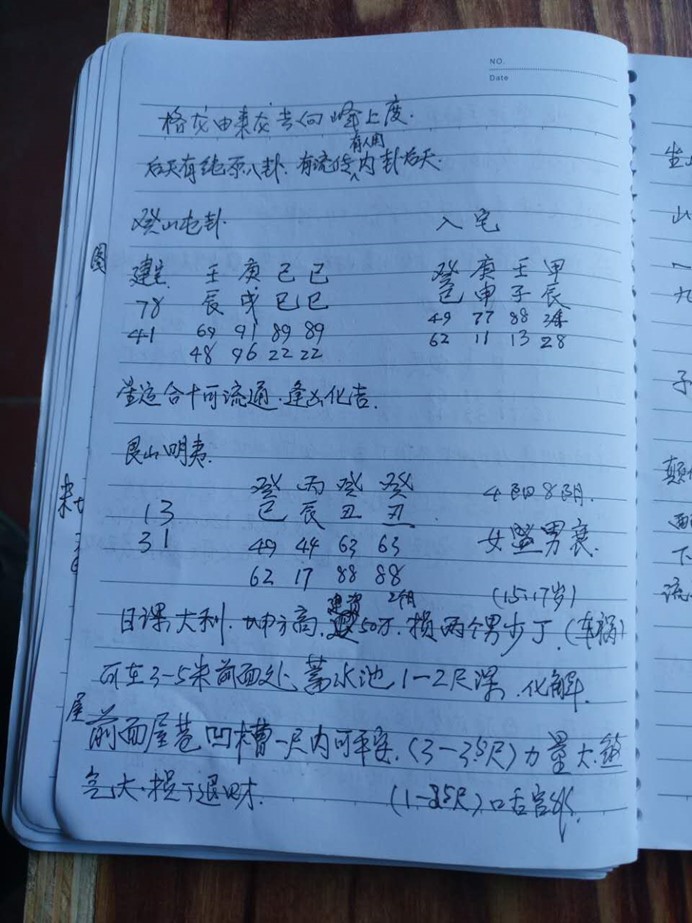 NO.
Date
格龙由来龙去向峰上度.
有人用
后天有纯原八卦.有流传内卦后天.
癸山屯卦. 入宅
图
建主 壬 庚 己 己 癸 庚 壬 甲
78 辰 戌 巳 巳 巳 申 子 辰
41 69 91 89 89 49 77 88
48 96 22 22 62 11 13 28
星运合十可流通.逢凶化吉.
艮山明夷.
癸 丙 癸 癸 4阳8阴.
13 巳 辰 丑 丑
31 49 44 63 63 女盛男衰.
62 17 88 88
2个 (15.17岁)
日课大利.坤方高, 50万.损两个男少丁.(车祸)
可在3-5米前面处.蓄水池1-2尺深.化解.
屋
前面屋巷凹槽一尺内可平安.(3-35尺)力量大.煞
气大.损丁退财. 口舌官非.
坐山
山
一
九
子
颠
下
流